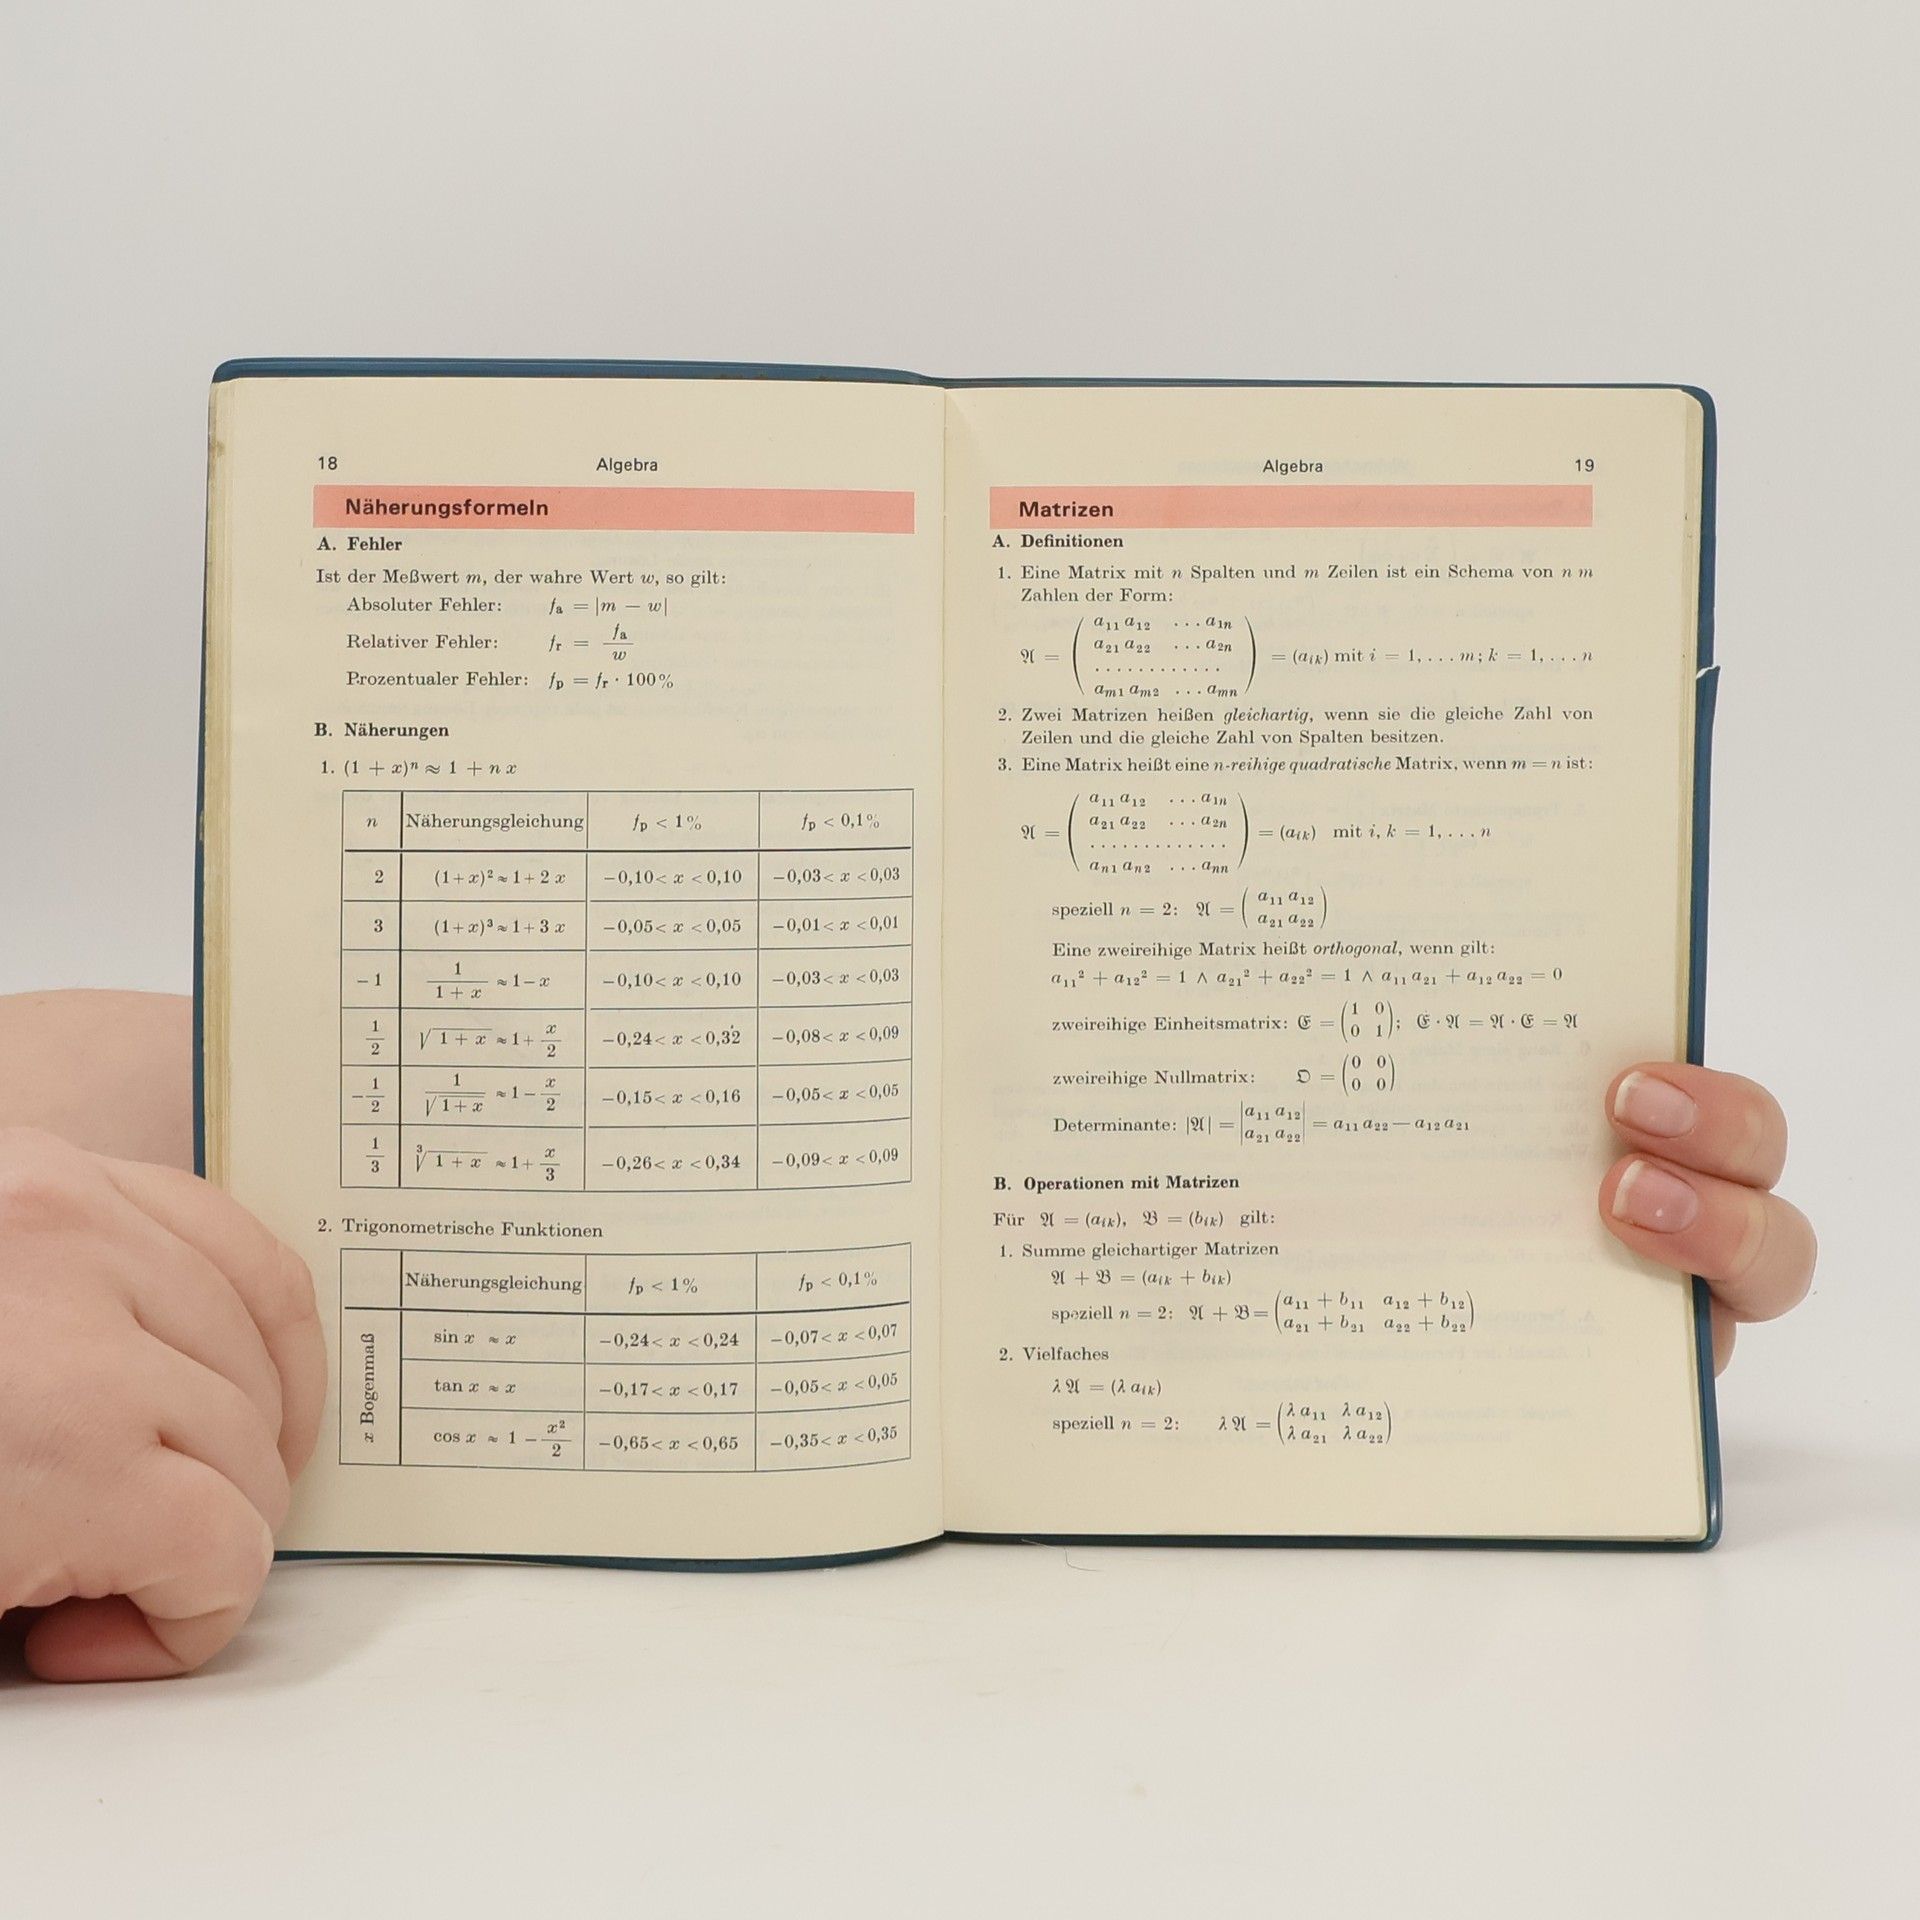 18 Algebra
Näherungsformeln
A. Fehler
Ist der Meßwert m, der wahre Wert w, so gilt:
Absoluter Fehler: fₐ = |m − w|
Relativer Fehler: fᵣ = fₐ/w
Prozentualer Fehler: fₚ = fᵣ · 100%
B. Näherungen
1. (1 + x)ⁿ ≈ 1 + n x
n Näherungsgleichung fₚ < 1% fₚ < 0,1%
2 (1+x)² ≈ 1+2 x −0,10< x <0,10 −0,03< x <0,03
3 (1+x)³ ≈ 1+3 x −0,05< x <0,05 −0,01< x <0,01
−1 1/(1 + x) ≈ 1−x −0,10< x <0,10 −0,03< x <0,03
1/2 √(1 + x) ≈ 1+ x/2 −0,24< x <0,32 −0,08< x <0,09
−1/2 1/√(1+x) ≈ 1− x/2 −0,15< x <0,16 −0,05< x <0,05
1/3 ∛(1 + x) ≈ 1+ x/3 −0,26< x <0,34 −0,09< x <0,09
2. Trigonometrische Funktionen
Näherungsgleichung fₚ < 1% fₚ < 0,1%
x Bogenmaß
sin x ≈ x −0,24< x <0,24 −0,07< x <0,07
tan x ≈ x −0,17< x <0,17 −0,05< x <0,05
cos x ≈ 1 − x²/2 −0,65< x <0,65 −0,35< x <0,35
Algebra 19
Matrizen
A. Definitionen
1. Eine Matrix mit n Spalten und m Zeilen ist ein Schema von n m
Zahlen der Form:
a₁₁ a₁₂ ... a₁ₙ
a₂₁ a₂₂ ... a₂ₙ
𝔄 = ............ = (aᵢₖ) mit i = 1, ... m; k = 1, ... n
aₘ₁ aₘ₂ ... aₘₙ
2. Zwei Matrizen heißen gleichartig, wenn sie die gleiche Zahl von
Zeilen und die gleiche Zahl von Spalten besitzen.
3. Eine Matrix heißt eine n-reihige quadratische Matrix, wenn m = n ist:
a₁₁ a₁₂ ... a₁ₙ
a₂₁ a₂₂ ... a₂ₙ
𝔄 = ............. = (aᵢₖ) mit i, k = 1, ... n
aₙ₁ aₙ₂ ... aₙₙ
speziell n = 2: 𝔄 = ( a₁₁ a₁₂
a₂₁ a₂₂ )
Eine zweireihige Matrix heißt orthogonal, wenn gilt:
a₁₁² + a₁₂² = 1 ∧ a₂₁² + a₂₂² = 1 ∧ a₁₁ a₂₁ + a₁₂ a₂₂ = 0
zweireihige Einheitsmatrix: 𝔈 = (1 0
0 1); 𝔈 · 𝔄 = 𝔄 · 𝔈 = 𝔄
zweireihige Nullmatrix: 𝔒 = (0 0
0 0)
Determinante: |𝔄| = |a₁₁ a₁₂
a₂₁ a₂₂| = a₁₁ a₂₂ − a₁₂ a₂₁
B. Operationen mit Matrizen
Für 𝔄 = (aᵢₖ), 𝔅 = (bᵢₖ) gilt:
1. Summe gleichartiger Matrizen
𝔄 + 𝔅 = (aᵢₖ + bᵢₖ)
speziell n = 2: 𝔄 + 𝔅 = (a₁₁ + b₁₁ a₁₂ + b₁₂
a₂₁ + b₂₁ a₂₂ + b₂₂)
2. Vielfaches
λ 𝔄 = (λ aᵢₖ)
speziell n = 2: λ 𝔄 = (λ a₁₁ λ a₁₂
λ a₂₁ λ a₂₂)